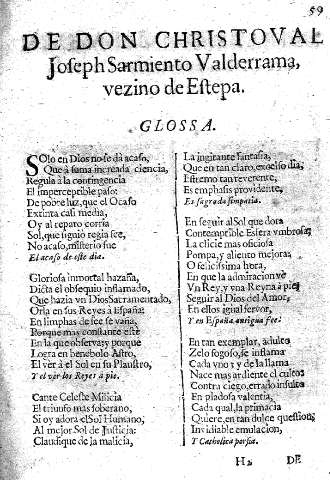 59
DE DON CHRISTOVAL
Joseph Sarmiento Valderrama,
vezino de Estepa.
GLOSSA.
SOlo en Dios no se dà acaso,
Que à suma increada ciencia,
Regula à la contingencia
El imperceptible paso:
De pobre luz, que el Ocaso
Extinta casi media,
Oy al reparo corria
Sol, que siguiò regia fee,
No acaso, misterio fue
El acaso de este dia.
Gloriosa inmortal hazaña,
Dicta el obsequio inflamado,
Que hazia vn Dios Sacramentado,
Orla en sus Reyes à España:
En limphas de fee se vaña,
Porque mas constante estè
En la que observa, y porque
Logra en benebolo Astro,
El ver à el Sol en su Plaustro,
Y el ver los Reyes à pie.
Cante Celeste Milicia
El triunfo mas soberano,
Si oy adora el Sol Humano,
Al mejor Sol de Justicia:
Claudique de la malicia,
La ingitante fantasia,
Que en tan claro, excelso dia,
Istremo tan reverente,
Es emphasis providente,
Es sagrada simpatia.
En seguir al Sol que dora
Contemptible Esfera vmbrosa,
La clicie mas oficiosa
Pompa, y aliento mejora;
O felicissima hora,
En que la admiracion vè
Vn Rey, y vna Reyna à pie
Seguir al Dios del Amor,
En ellos igual fervor,
Y en España antigua fee.
En tan exemplar, adulto
Zelo fogoso, se inflama
Cada vno; y de la llama
Nace mas ardiente el culto:
Contra ciego, errado insulto
En piadosa valentia,
Cada qual, la primacia
Quiere, en tan dulce question,
Invidiable emulacion,
Y Catholica porfia.
H2
DE